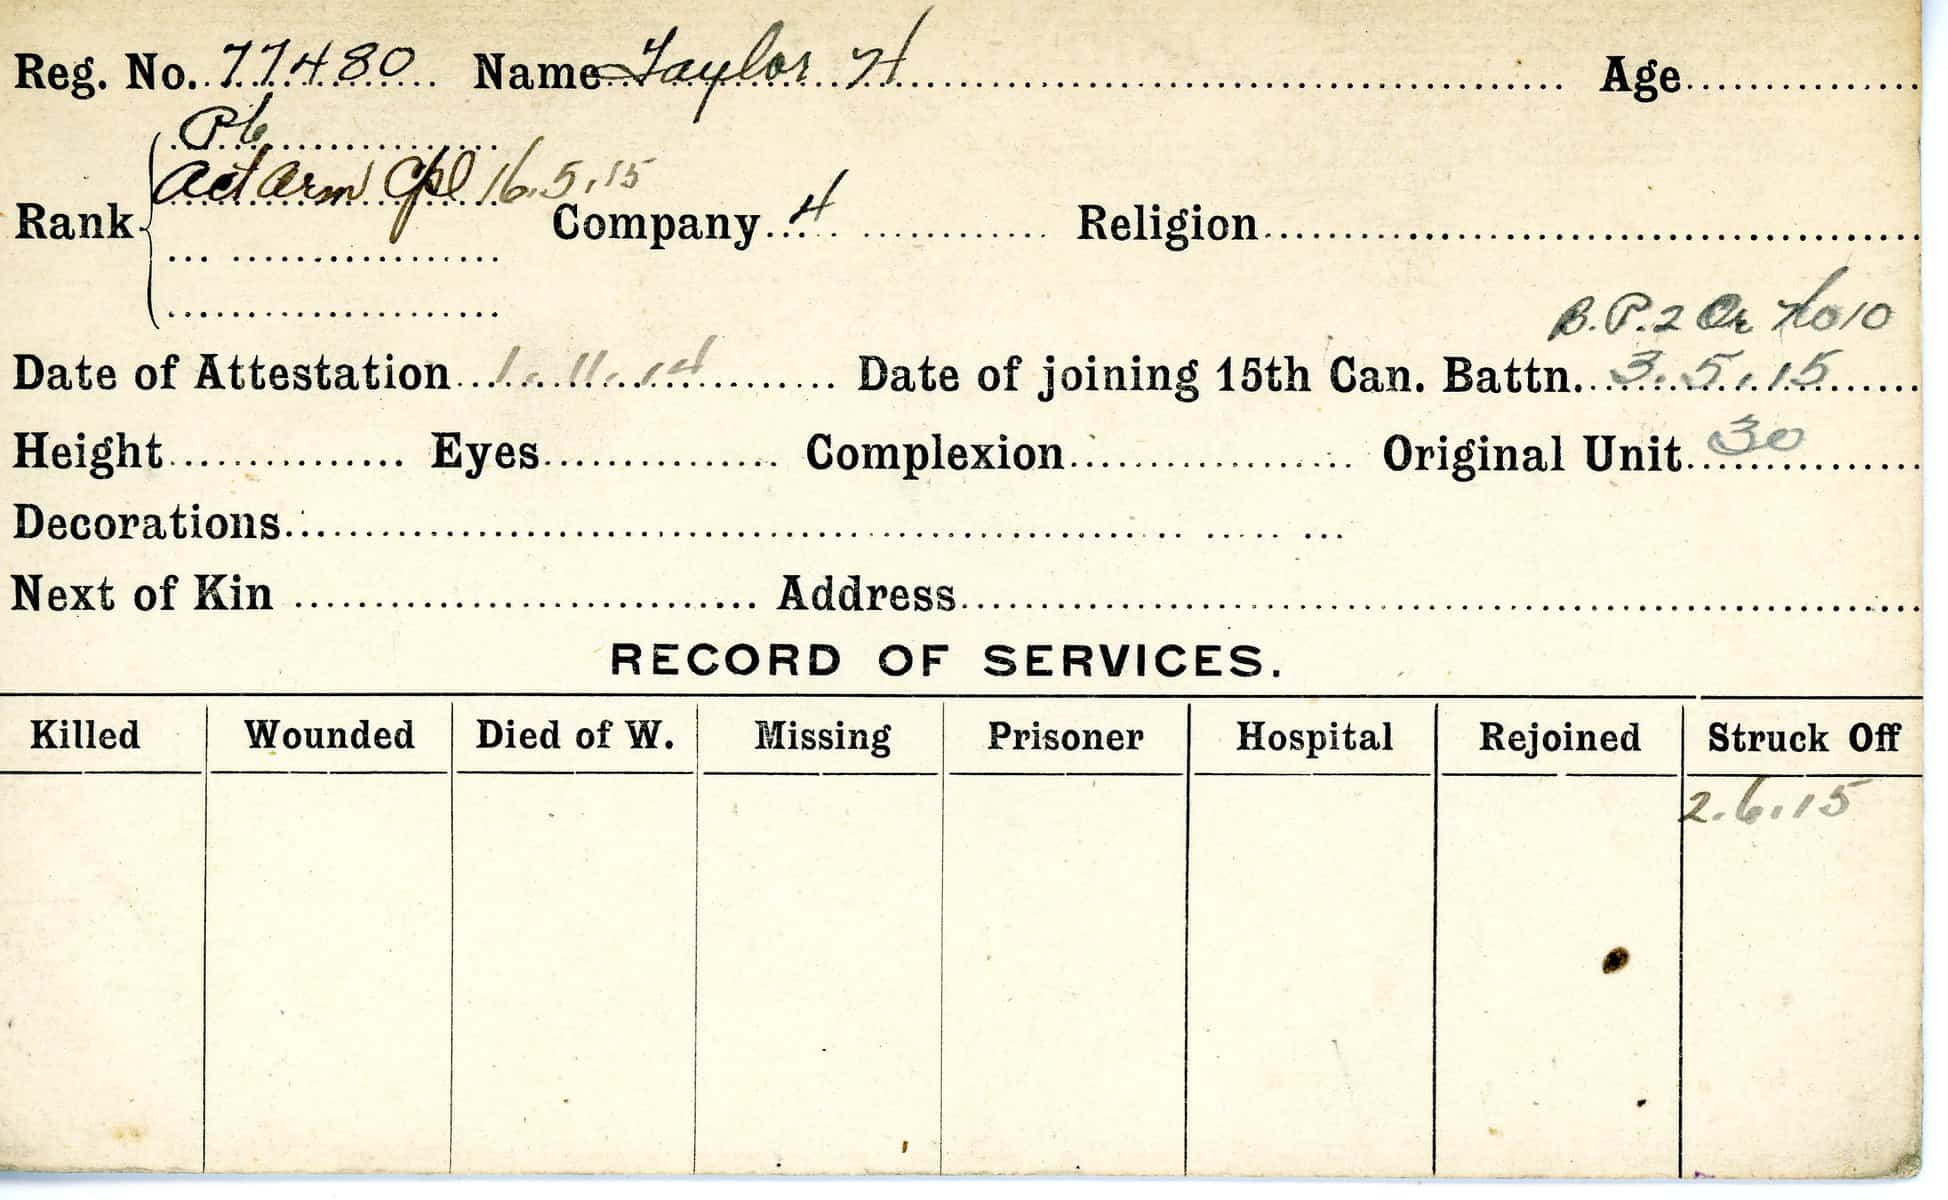 Reg. No. 77480 Name Taylor H Age
Pte
Act Arm Cpl 16.5.15
Rank Company 4 Religion
B.P.2 Or No 10
Date of Attestation 1.11.14 Date of joining 15th Can. Battn. 3.5.15
Height Eyes Complexion Original Unit 30
Decorations
Next of Kin Address
RECORD OF SERVICES.
Killed Wounded Died of W. Missing Prisoner Hospital Rejoined Struck Off
2.6.15